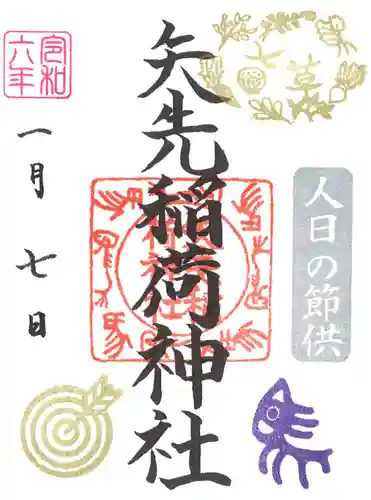 七草
矢先稲荷神社
人日の節供
令和
六年
一月七日